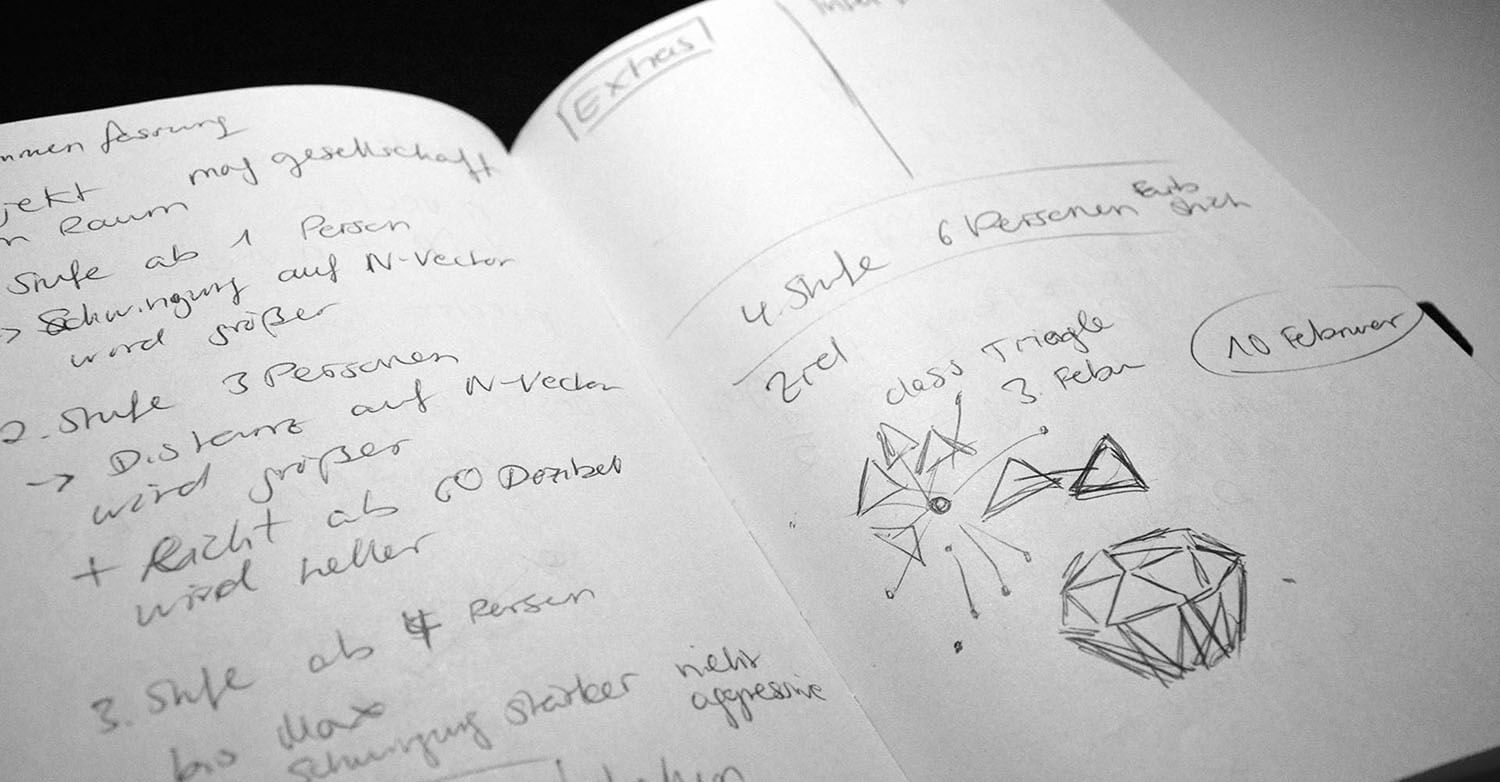 mmenfassung
jekt mag gesellschaft
n Raum
Stufe ab 1 Person
-> Schwingung auf N-Vector
wird größer
2. Stufe 3 Personen
-> Distanz auf N-Vector
wird größer
+ Licht ab 60 Dezibel
wird heller
3. Stufe ab 4 Person
bis Max
Schwingung stärker nicht
aggressive
Extras
4. Stufe 6 Personen
Ziel
class Triagle
3. Febr
10 Februar